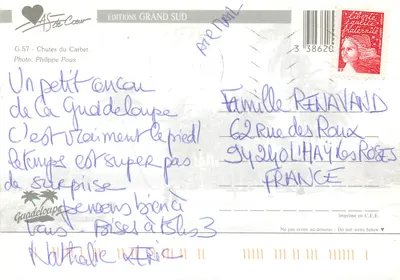 As de Cœur
EDITIONS GRAND SUD
G-57 - Chutes du Carbet
Photo: Philippe Poux
AIR MAIL
3 38620
Liberté
égalité
fraternité
Un petit coucou
de la Guadeloupe
C'est vraiment le pied!
le temps est super pas
de surprise
pensons bien à
vous Bises à tous 3
Nathalie & ERIC
Famille RENAVAND
62 Rue des Roux
94240 L'HAŸ les ROSES
FRANCE
Guadeloupe
Imprimé en C.E.E.
Ne pas écrire au-dessous - Do not write below